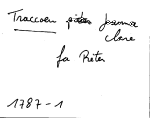 Traccoen Joanna
Clare
fa Peter
1787-1